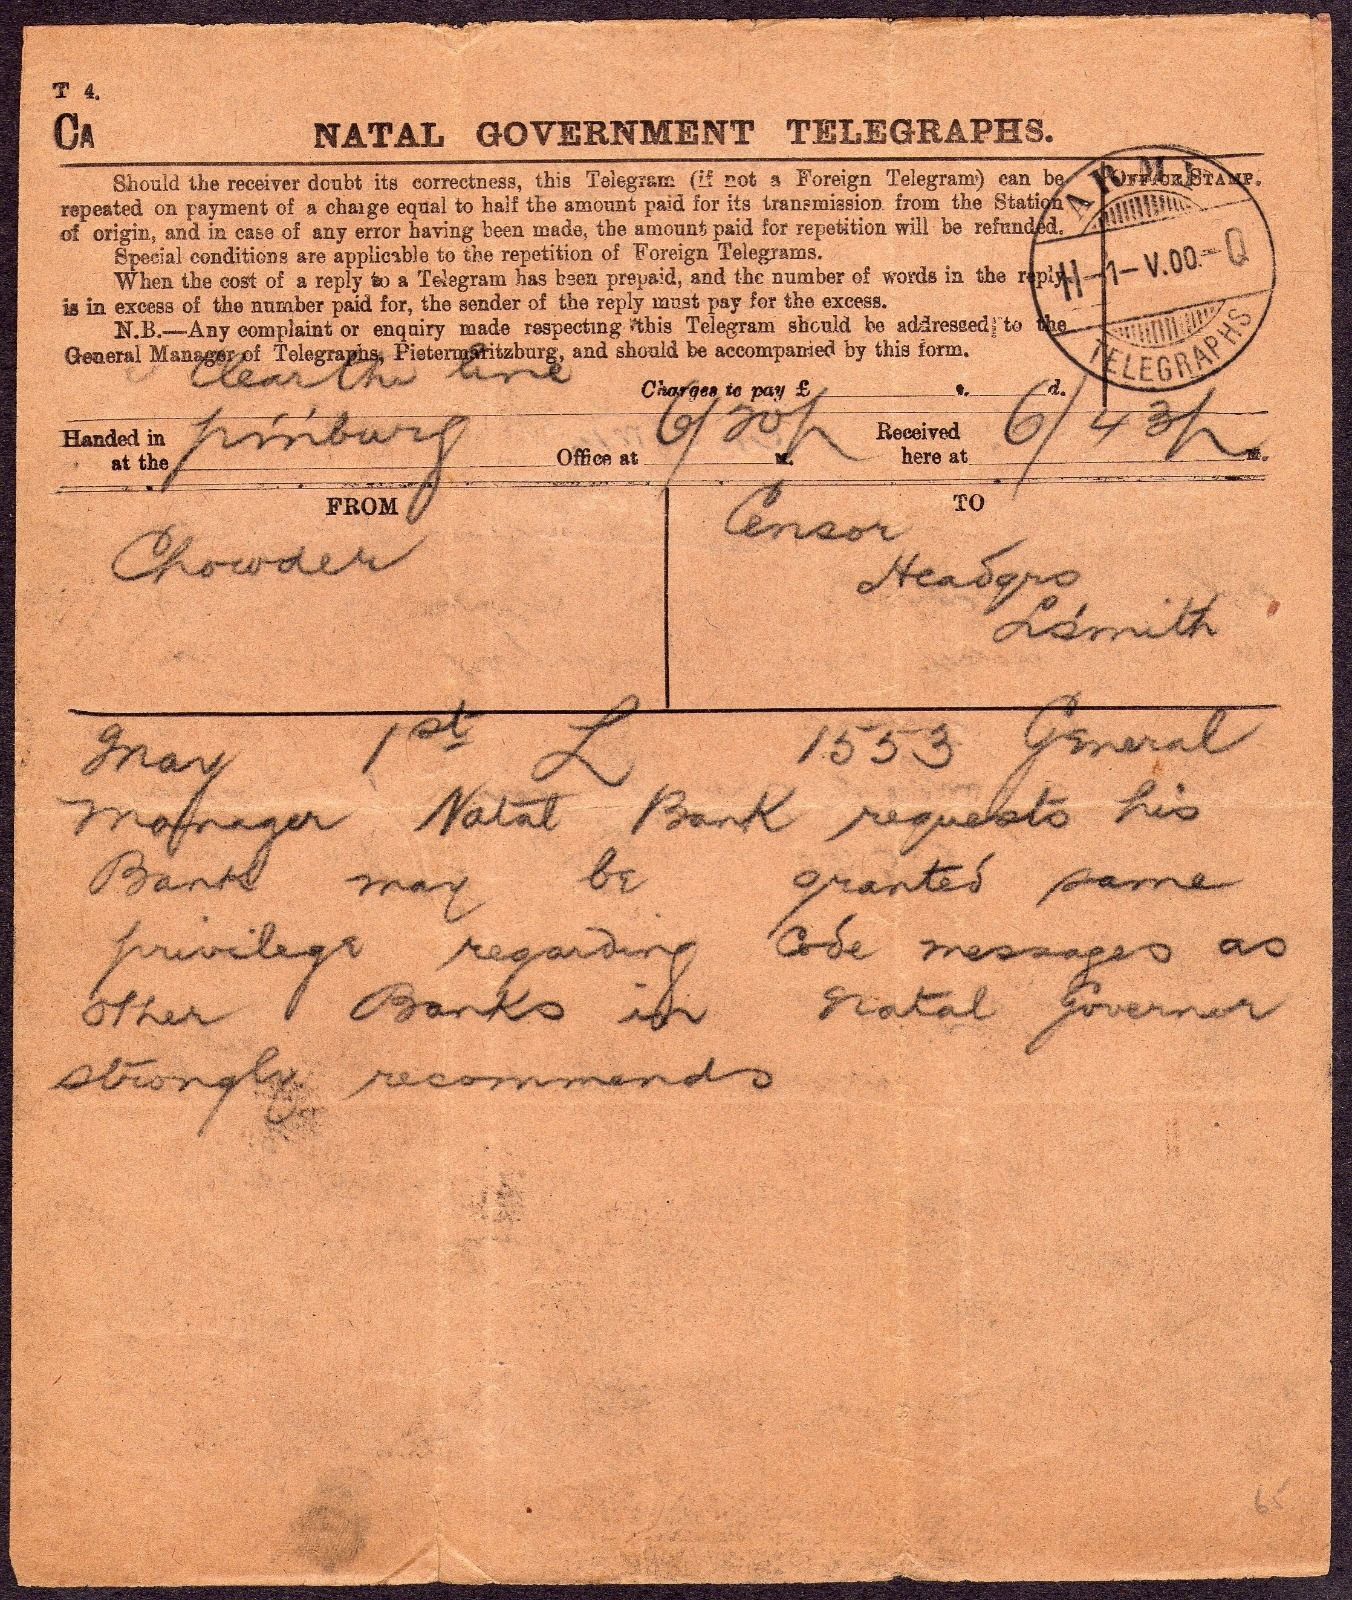 T 4.
CA
NATAL GOVERNMENT TELEGRAPHS.
Should the receiver doubt its correctness, this Telegram (if not a Foreign Telegram) can be
repeated on payment of a charge equal to half the amount paid for its transmission from the Station
of origin, and in case of any error having been made, the amount paid for repetition will be refunded.
Special conditions are applicable to the repetition of Foreign Telegrams.
When the cost of a reply to a Telegram has been prepaid, and the number of words in the reply
is in excess of the number paid for, the sender of the reply must pay for the excess.
N.B.—Any complaint or enquiry made respecting this Telegram should be addressed to the
General Manager of Telegraphs, Pietermaritzburg, and should be accompanied by this form.
OFFICE STAMP.
ARMY
H-1-V.00.-Q
TELEGRAPHS
Clear the line
Charges to pay £ s. d.
Handed in at the pm'burg Office at 6/20 p M. Received here at 6/43 p M.
FROM
Chowder
TO
Censor
Headqrs
L'smith
May 1st L 1553 General
Manager Natal Bank requests his
Bank may be granted same
privilege regarding Code messages as
other Banks in Natal Governor
strongly recommends
65